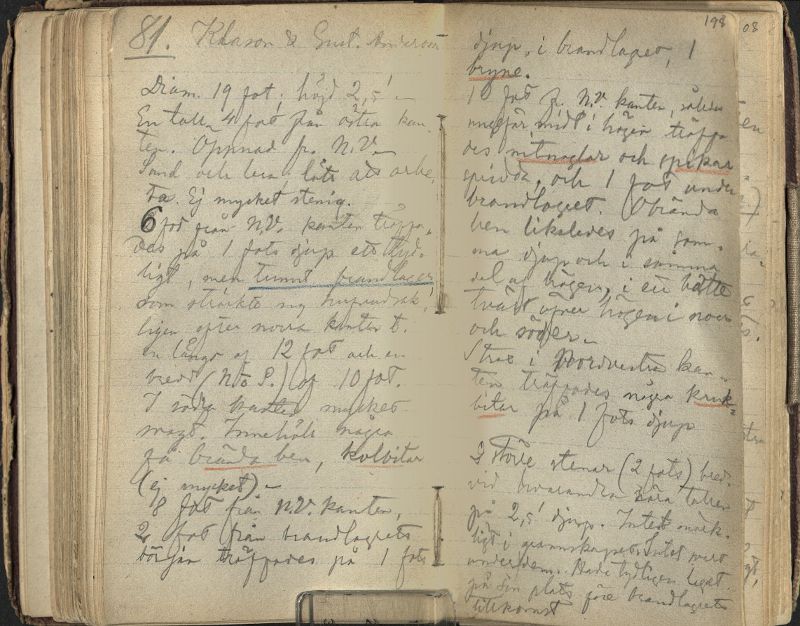 81. Klason & Gust. Anderson
Diam. 19 fot; höjd 2,5' –
En tall 4 fot från östra kan-
ten. Öppnad fr. N.V. –
Sand och lera. Lätt att arbe-
ta. Ej mycket stenig.
6 fot från N.V. kanten träffa-
des på 1 fots djup ett tyd-
ligt, men tunnt brandlager
som sträckte sig hufvudsak-
ligen efter norra kanten t.
en längd af 12 fot och en
bredd (N to S.) af 10 fot.
I södra kanten mycket
svagt. Innehöll några
få brända ben, kolbitar
(ej mycket) –
8 fot från N.V. kanten,
2 fot från brandlagrets
början träffades på 1 fots
198
djup, i brandlagret, 1
bryne.
10 fot fr. N.V. kanten, således
ungefär midt i högen träffa-
des nitnaglar och spikar
spridda, och 1 fot under
brandlagret. Obrända
ben likaledes på sam-
ma djup och i samma
del af högen, i ett bälte
tvärt öfver högen i norr
och söder. –
Strax i Nordvestra kan-
ten träffades några kruk-
bitar på 1 fots djup
2 större stenar (2 fots) bred-
vid hvarandra nära tallen
på 2,5' djup. Intet märk-
ligt i grannskapet. Intet
under dem. Hade tydligen legat
på sin plats före brandlagrets
tillkomst
08